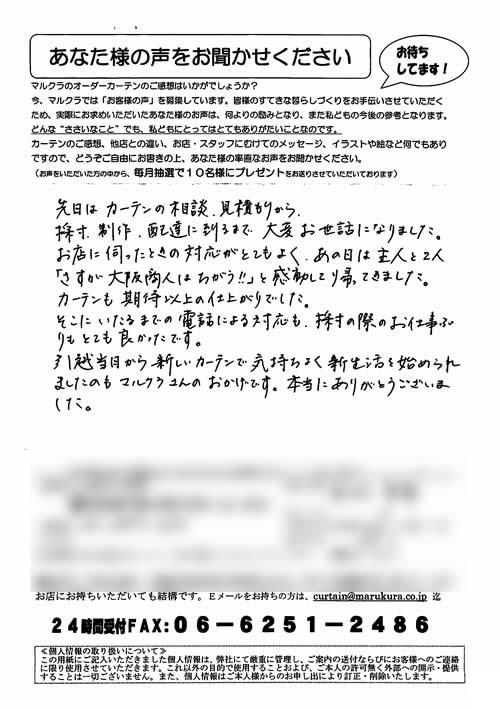 あなた様の声をお聞かせください
お待ち
してます！
マルクラのオーダーカーテンのご感想はいかがでしょうか？
今、マルクラでは「お客様の声」を募集しています。皆様のすてきな暮らしづくりをお手伝いさせていただく
ため、実際にお求めいただいたあなた様のお声は、何よりの励みとなり、また私どもの今後の参考となります。
どんな“ささいなこと”でも、私どもにとってはとてもありがたいことなのです。
カーテンのご感想、他店との違い、お店・スタッフにむけてのメッセージ、イラストや絵など何でもあり
ですので、どうぞご自由にお書きの上、あなた様の率直なお声をお聞かせください。
（お声をいただいた方の中から、毎月抽選で１０名様にプレゼントをお送りさせていただいております）
先日は カーテンの相談、見積もりから、
採寸、制作、配達に到るまで、大変お世話になりました。
お店に伺ったときの対応がとてもよく、あの日は主人と2人
「さすが大阪商人はちがう!!」と感動して帰ってきました。
カーテンも期待以上の仕上がりでした。
そこにいたるまでの電話による対応も、採寸の際のお仕事ぶ
りもとても良かったです。
引越当日から新しいカーテンで気持ちよく新生活を始められ
ましたのもマルクラさんのおかげです。本当にありがとうございま
した。
お店にお持ちいただいても結構です。Ｅメールをお持ちの方は、curtain@marukura.co.jp 迄
２４時間受付ＦＡＸ：０６－６２５１－２４８６
≪個人情報の取り扱いについて≫
この用紙にご記入いただきました個人情報は、弊社にて厳重に管理し、ご案内の送付ならびにお客様へのご連絡
に限り使用させていただきます。これ以外の目的で使用することおよび、ご本人の許可無く外部への開示・提供
することは一切ございません。また、個人情報はご本人様からのお申し出により訂正・削除いたします。